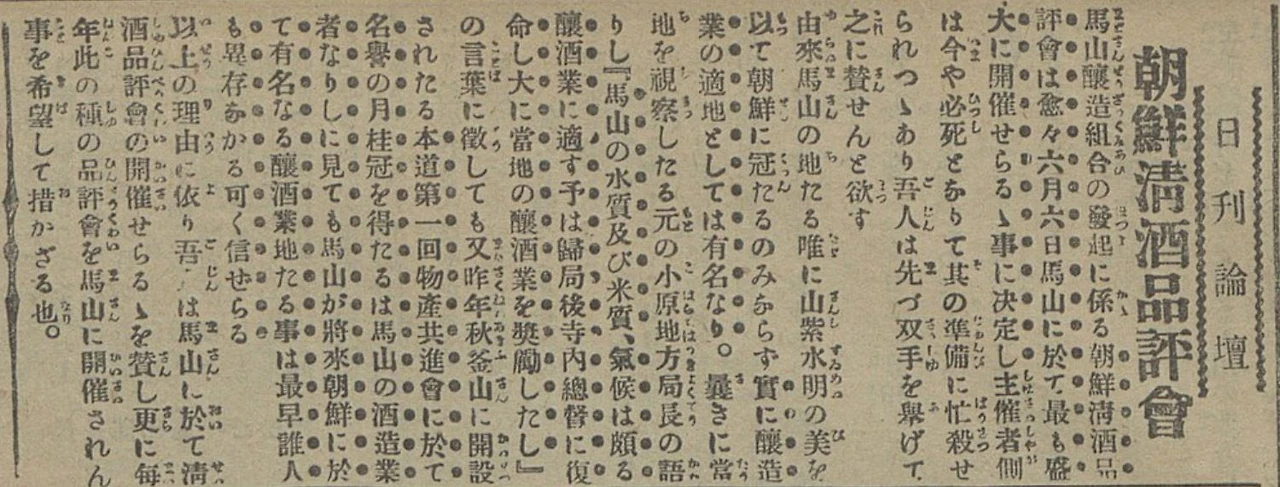 日刊論壇
朝鮮淸酒品評會
馬山釀造組合の發起に係る朝鮮淸酒品
評會は愈々六月六日馬山に於て最も盛
大に開催せらるゝ事に决定し主催者側
は今や必死となりて其の準備に忙殺せ
られつゝあり吾人は先づ双手を擧げて
之に贊せんと欲す
由來馬山の地たる唯に山紫水明の美を
以て朝鮮に冠たるのみならず實に釀造
業の適地としては有名なり。曩きに當
地を視察したる元の小原地方局長の語
りし『馬山の水質及び米質、氣候は頗る
釀酒業に適す予は歸局後寺內總督に復
命し大に當地の釀酒業を奬勵したし』
の言葉に徵しても又昨年秋釜山に開設
された本道第一回物產共進會に於て
名譽の月桂冠を得たるは馬山の酒造業
者なりしに見ても馬山が將來朝鮮に於
て有名なる釀酒業地たる事は最早誰人
も異存なかる可く信せらる
以上の理由に依り吾人は馬山に於て淸
酒品評會の開催せらるゝを贊し更に每
年此の種の品評會を馬山に開催されん
事を希望して措かざる也。